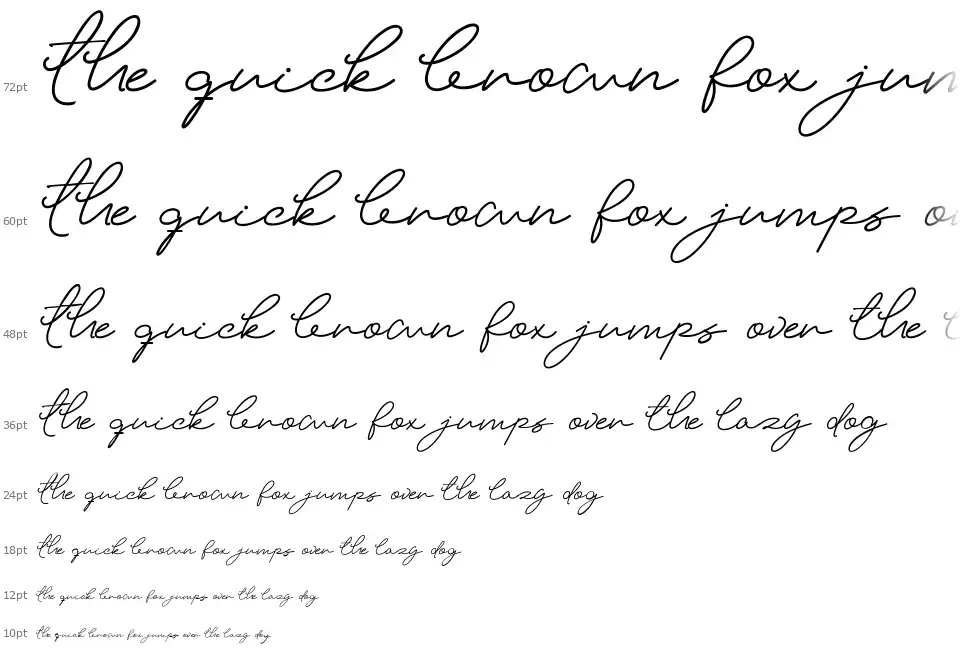 72pt the quick brown fox jum
60pt the quick brown fox jumps ov
48pt the quick brown fox jumps over the
36pt the quick brown fox jumps over the lazy dog
24pt the quick brown fox jumps over the lazy dog
18pt the quick brown fox jumps over the lazy dog
12pt the quick brown fox jumps over the lazy dog
10pt the quick brown fox jumps over the lazy dog